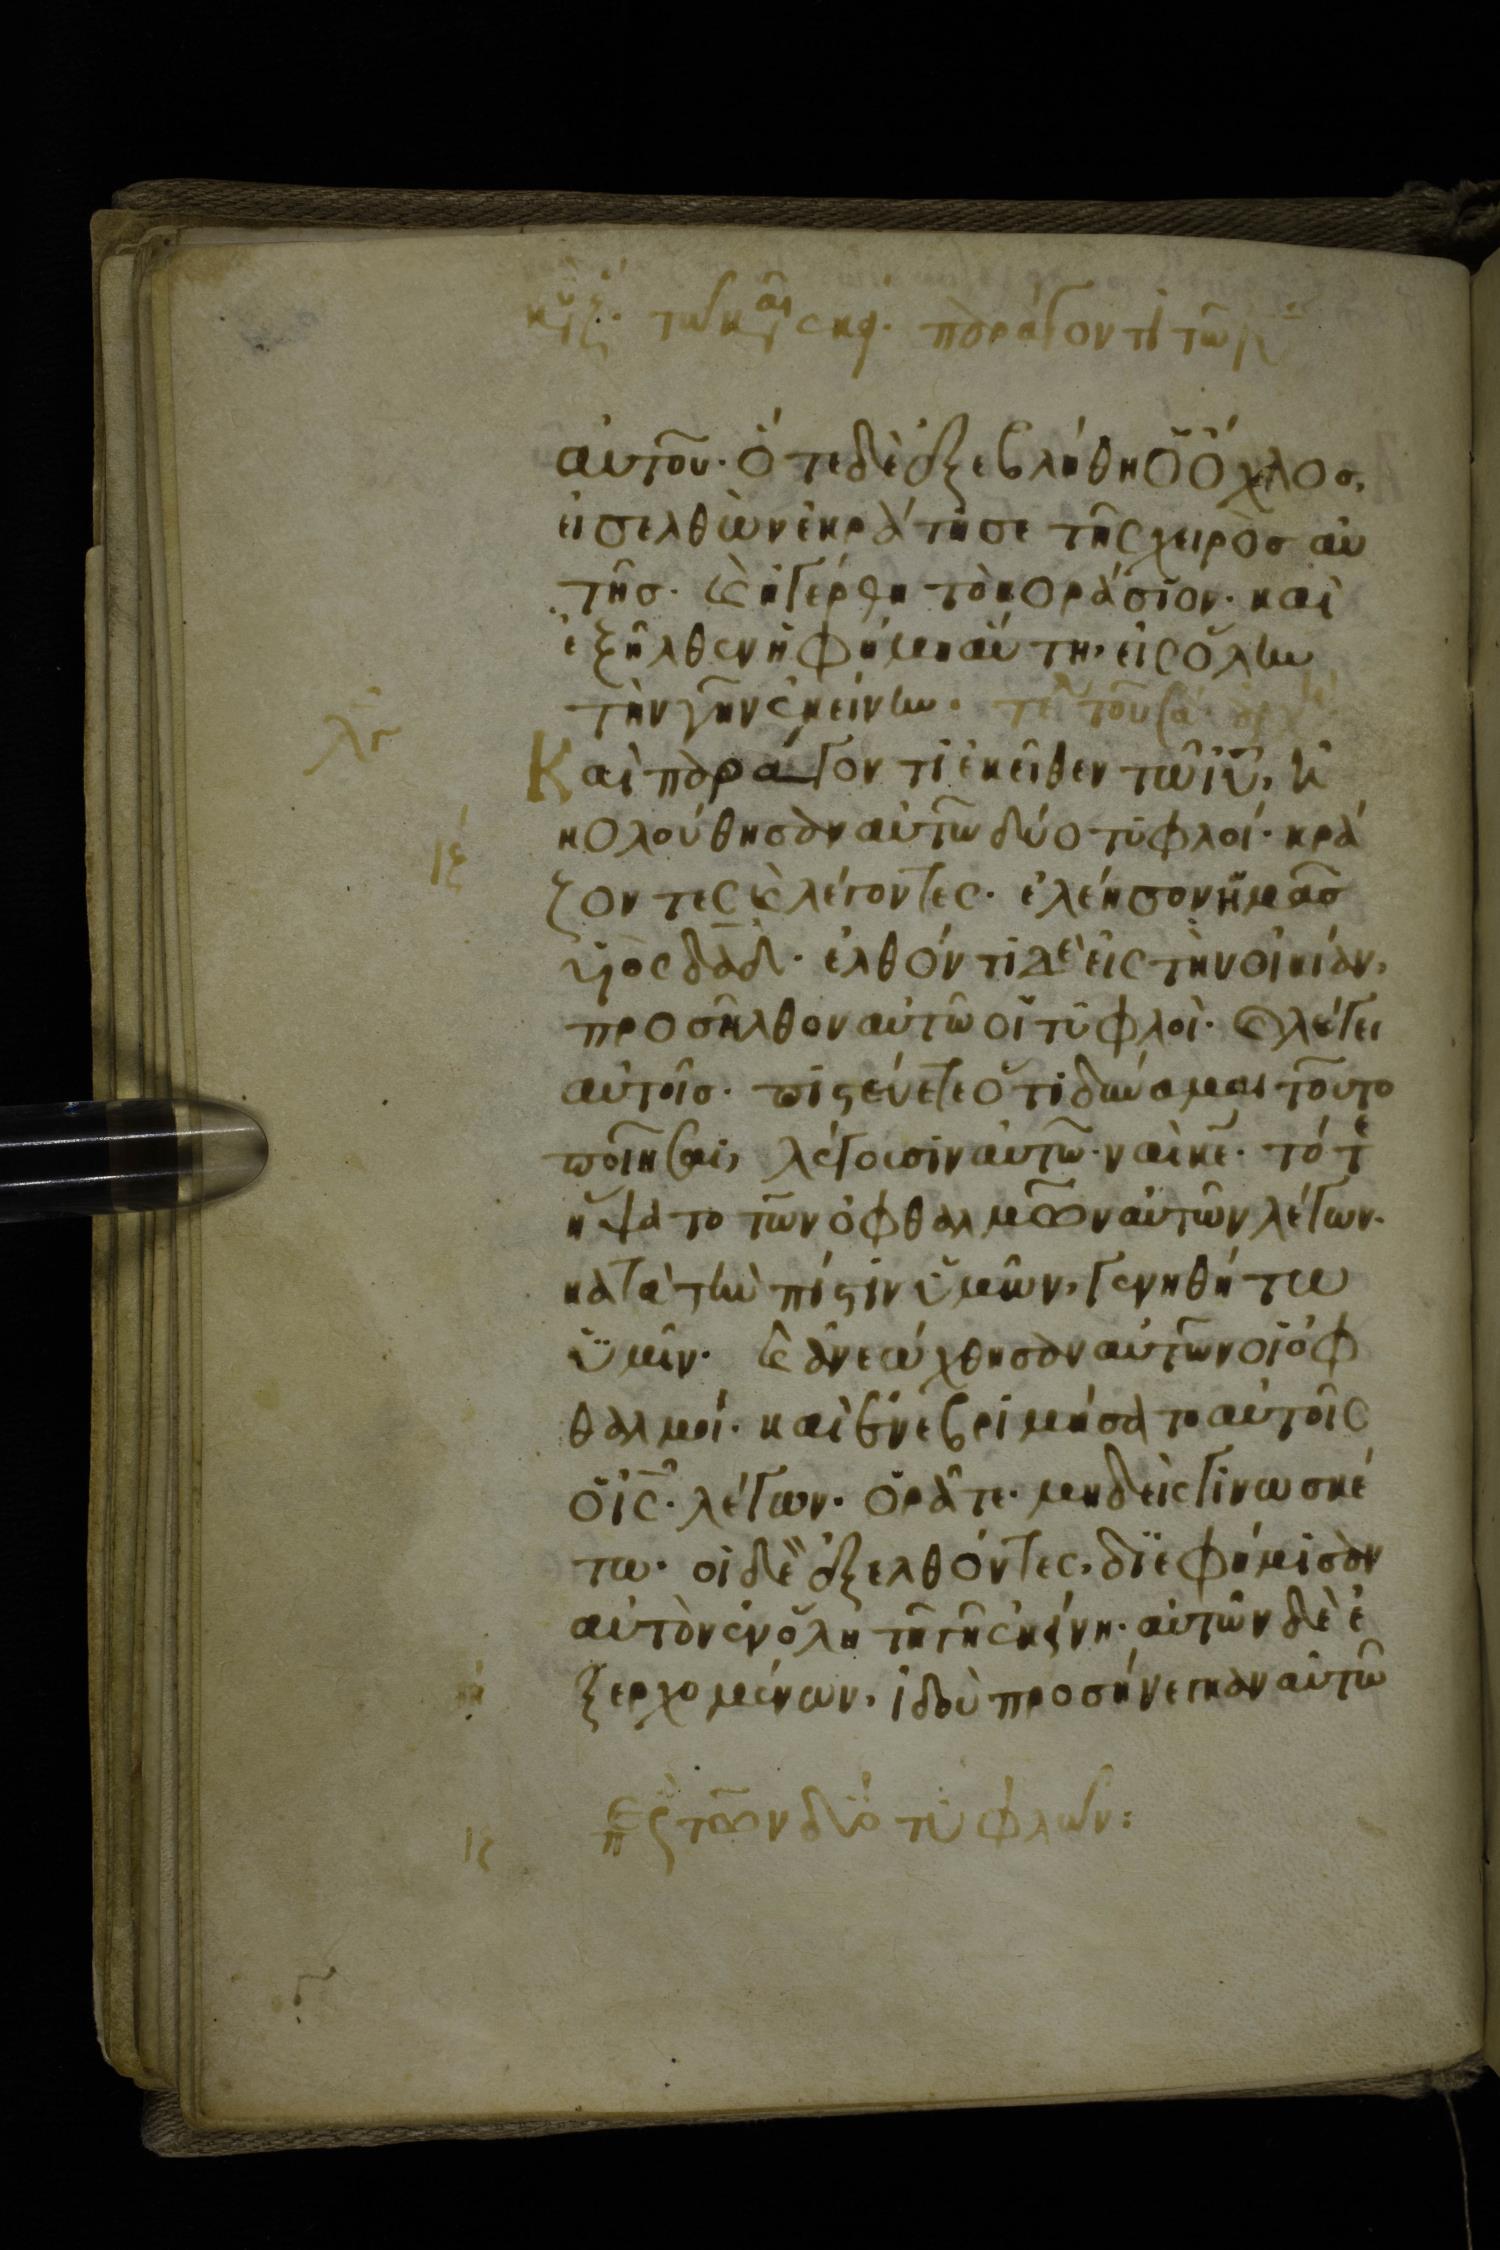 κυ ζ. τῶν κη παράγοντι τῶ ιυ
αὐτοῦ. ὅτε δὲ ἐξεβλήθη ὁ ὄχλος,
εἰσελθὼν ἐκράτησε τῆς χειρὸς αὐ
τῆς. καὶ ἠγέρθη τὸ κοράσιον. καὶ
ἐξῆλθεν ἡ φήμη αὕτη, εἰς ὅλην
τὴν γῆν ἐκείνην. τε τοῦ σα
Καὶ παράγοντι ἐκεῖθεν τῶ ἰυ, ἠ
κολούθησαν αὐτῶ δύο τυφλοί. κρά
ζοντες καὶ λέγοντες. ἐλέησον ἡμᾶς
ὑιὸς δαδ. ἐλθόντι δὲ εἰς τὴν οἰκίαν,
προσῆλθον αὐτῶ οἱ τυφλοὶ. καὶ λέγει
αὐτοῖς. πιστεύετε ὅτι δύναμαι τοῦτο
ποιῆσαι, λέγουσιν αὐτῶ. ναὶ κε. τότε
ἥψατο τῶν ὀφθαλμῶν αὐτῶν λέγων.
κατὰ τὴν πίστιν ὑμῶν, γενηθήτω
ὑμῖν. καὶ ἀνεώχθησαν αὐτῶν οἱ ὀφ
θαλμοί. καὶ ἐνεβριμήσατο αὐτοῖς
ὁ ις. λέγων. ὁρᾶτε. μηδεὶς γινωσκέ
τω. οἱ δὲ ἐξελθόντες, διεφήμισαν
αὐτὸν ἐν ὅλη τῆ γῆ ἐκείνη. αὐτῶν δὲ ἐ
ξερχομένων, ἰδοὺ προσήνεγκαν αὐτῶ
ις περὶ τῶν δύο τυφλῶν: